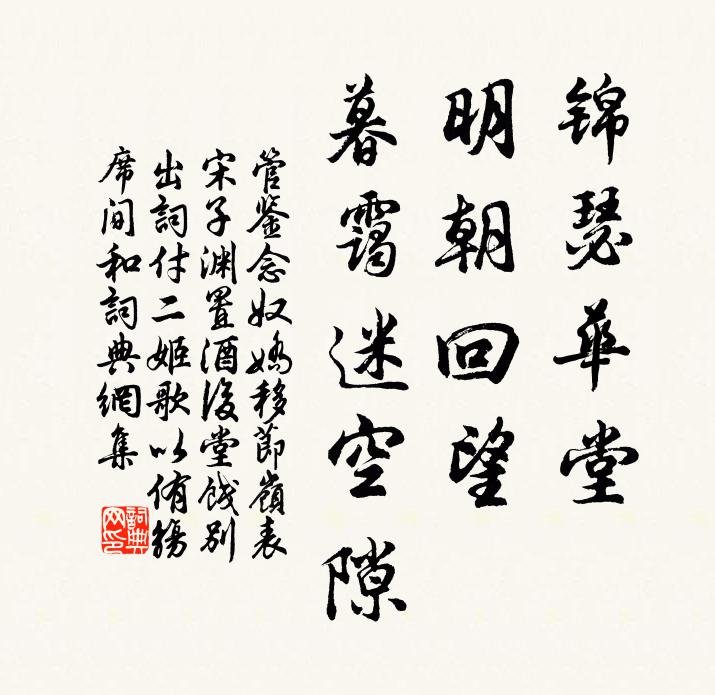 锦瑟華堂
明朝回望
暮靄迷空隙
管鉴念奴嬌移節嶺表
宋子渊置酒後堂餞别
出詞付二姬歌以侑觴
席间和詞典網集
詞典
网印